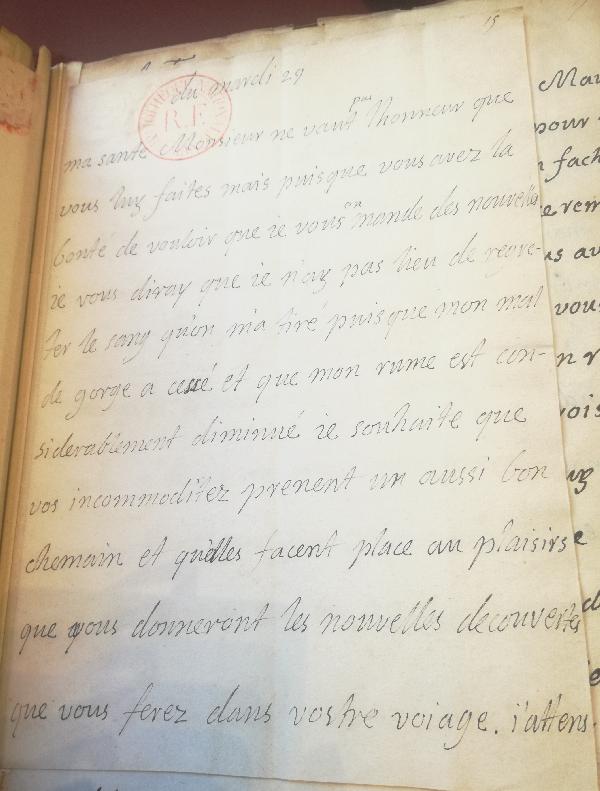 15
du mardi 29
ma santé Monsieur ne vaut pas l'honneur que
vous luy faites mais puisque vous avez la
bonté de vouloir que ie vous en mande des nouvelles
ie vous diray que ie n'ay pas lieu de regre-
ter le sang qu'on m'a tiré puisque mon mal
de gorge a cessé et que mon rume est con-
siderablement diminué ie souhaite que
vos incommoditez prenent un aussi bon
chemain et qu'elles facent place au plaisirs
que vous donneront les nouvelles decouvertes
que vous ferez dans vostre voiage. i'attens
R.F.
pour
vous